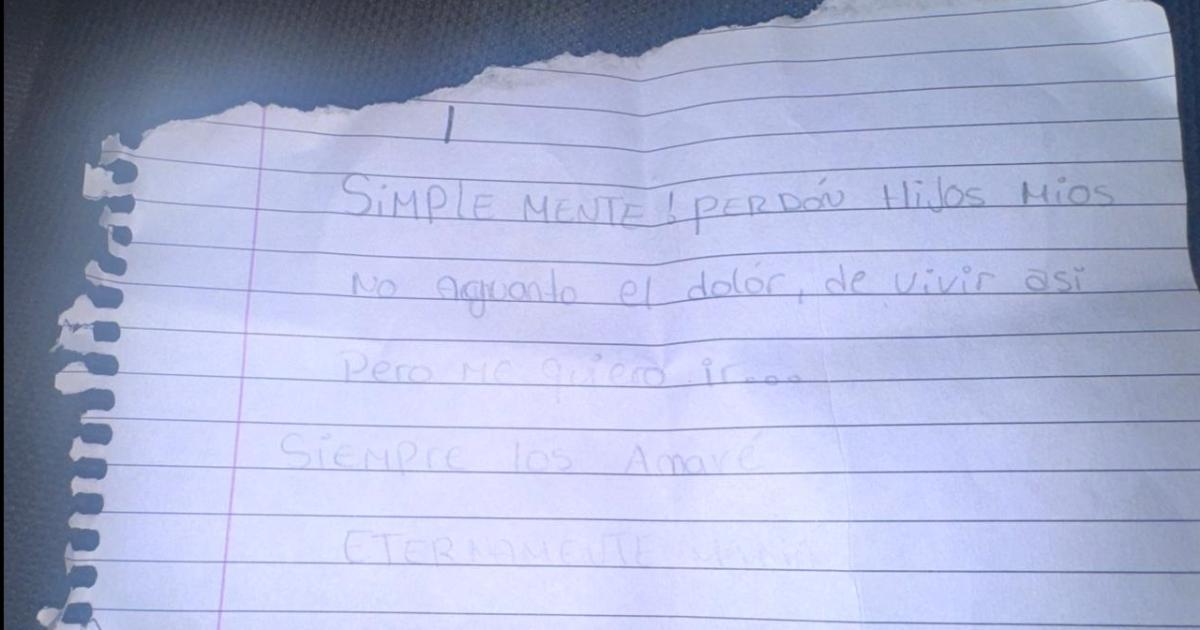 SiMPlE MENTE! PERDÓN HiJos Mios
No Aguanto el dolór, de vivir asi
Pero Me quiero ir...
SiEMPrE los Amaré
ETERNAMENTE MAMÁ